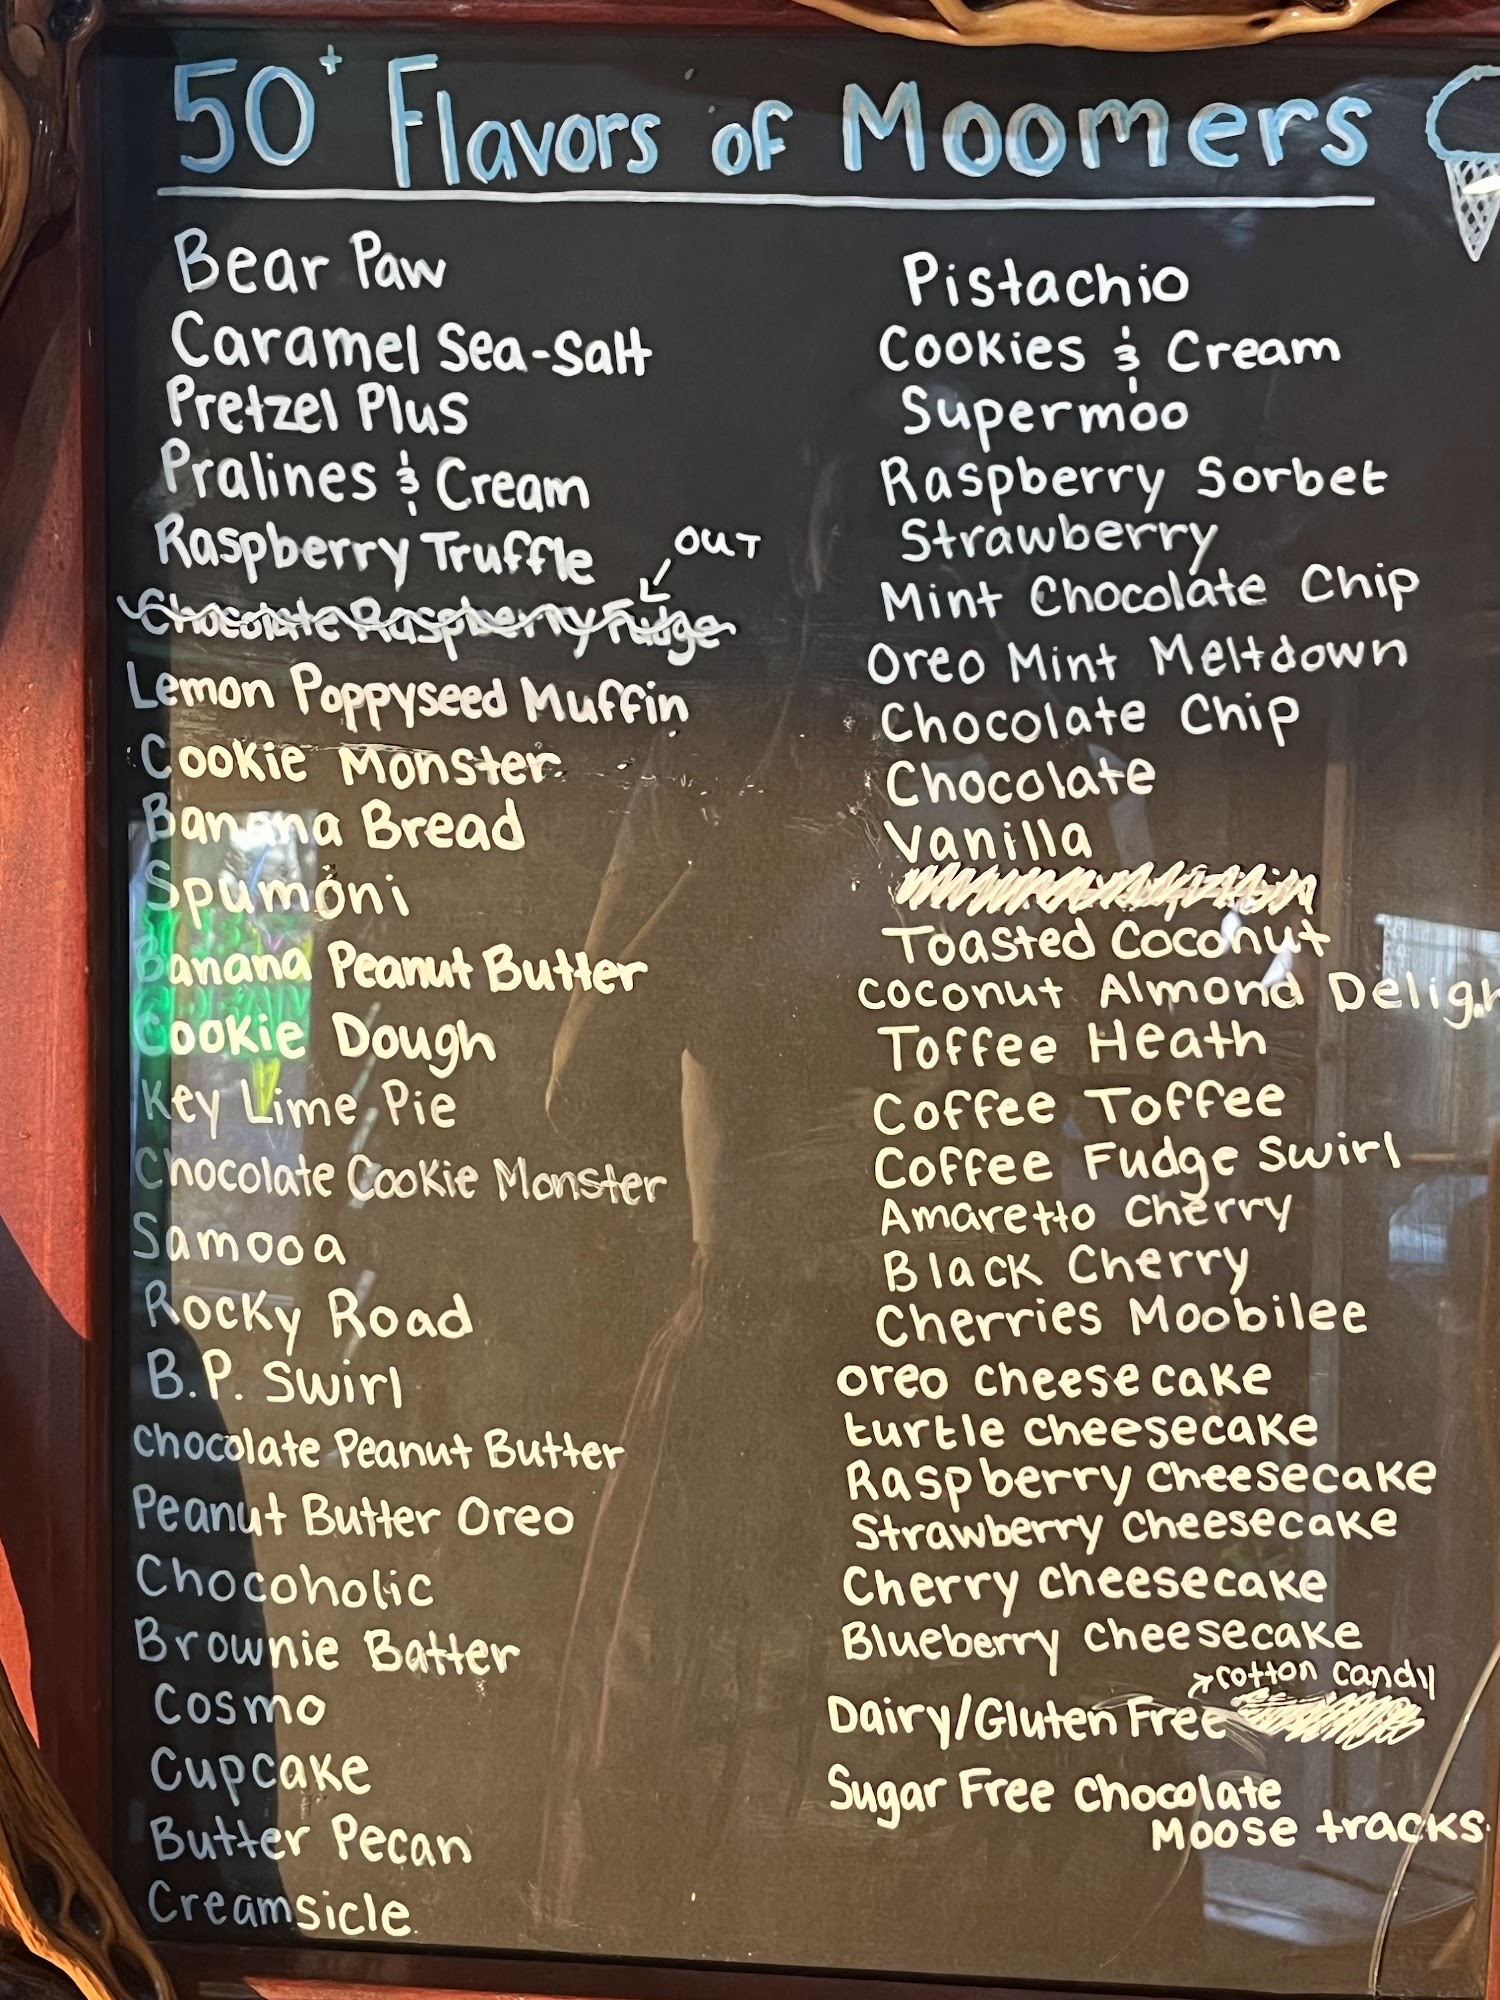 50+ Flavors of Moomers
Bear Paw
Caramel Sea-Salt
Pretzel Plus
Pralines & Cream
Raspberry Truffle
OUT
Chocolate Raspberry Fudge
Lemon Poppyseed Muffin
Cookie Monster
Banana Bread
Spumoni
Banana Peanut Butter
Cookie Dough
Key Lime Pie
Chocolate Cookie Monster
Samooa
Rocky Road
B.P. Swirl
Chocolate Peanut Butter
Peanut Butter Oreo
Chocoholic
Brownie Batter
Cosmo
Cupcake
Butter Pecan
Creamsicle
Pistachio
Cookies & Cream
Supermoo
Raspberry Sorbet
Strawberry
Mint Chocolate Chip
Oreo Mint Meltdown
Chocolate Chip
Chocolate
Vanilla
Toasted Coconut
Coconut Almond Deligh
Toffee Heath
Coffee Toffee
Coffee Fudge Swirl
Amaretto Cherry
Black Cherry
Cherries Moobilee
Oreo cheesecake
turtle cheesecake
Raspberry cheesecake
Strawberry cheesecake
Cherry cheesecake
Blueberry cheesecake
cotton candy
Dairy/Gluten Free
Sugar Free Chocolate
Moose tracks